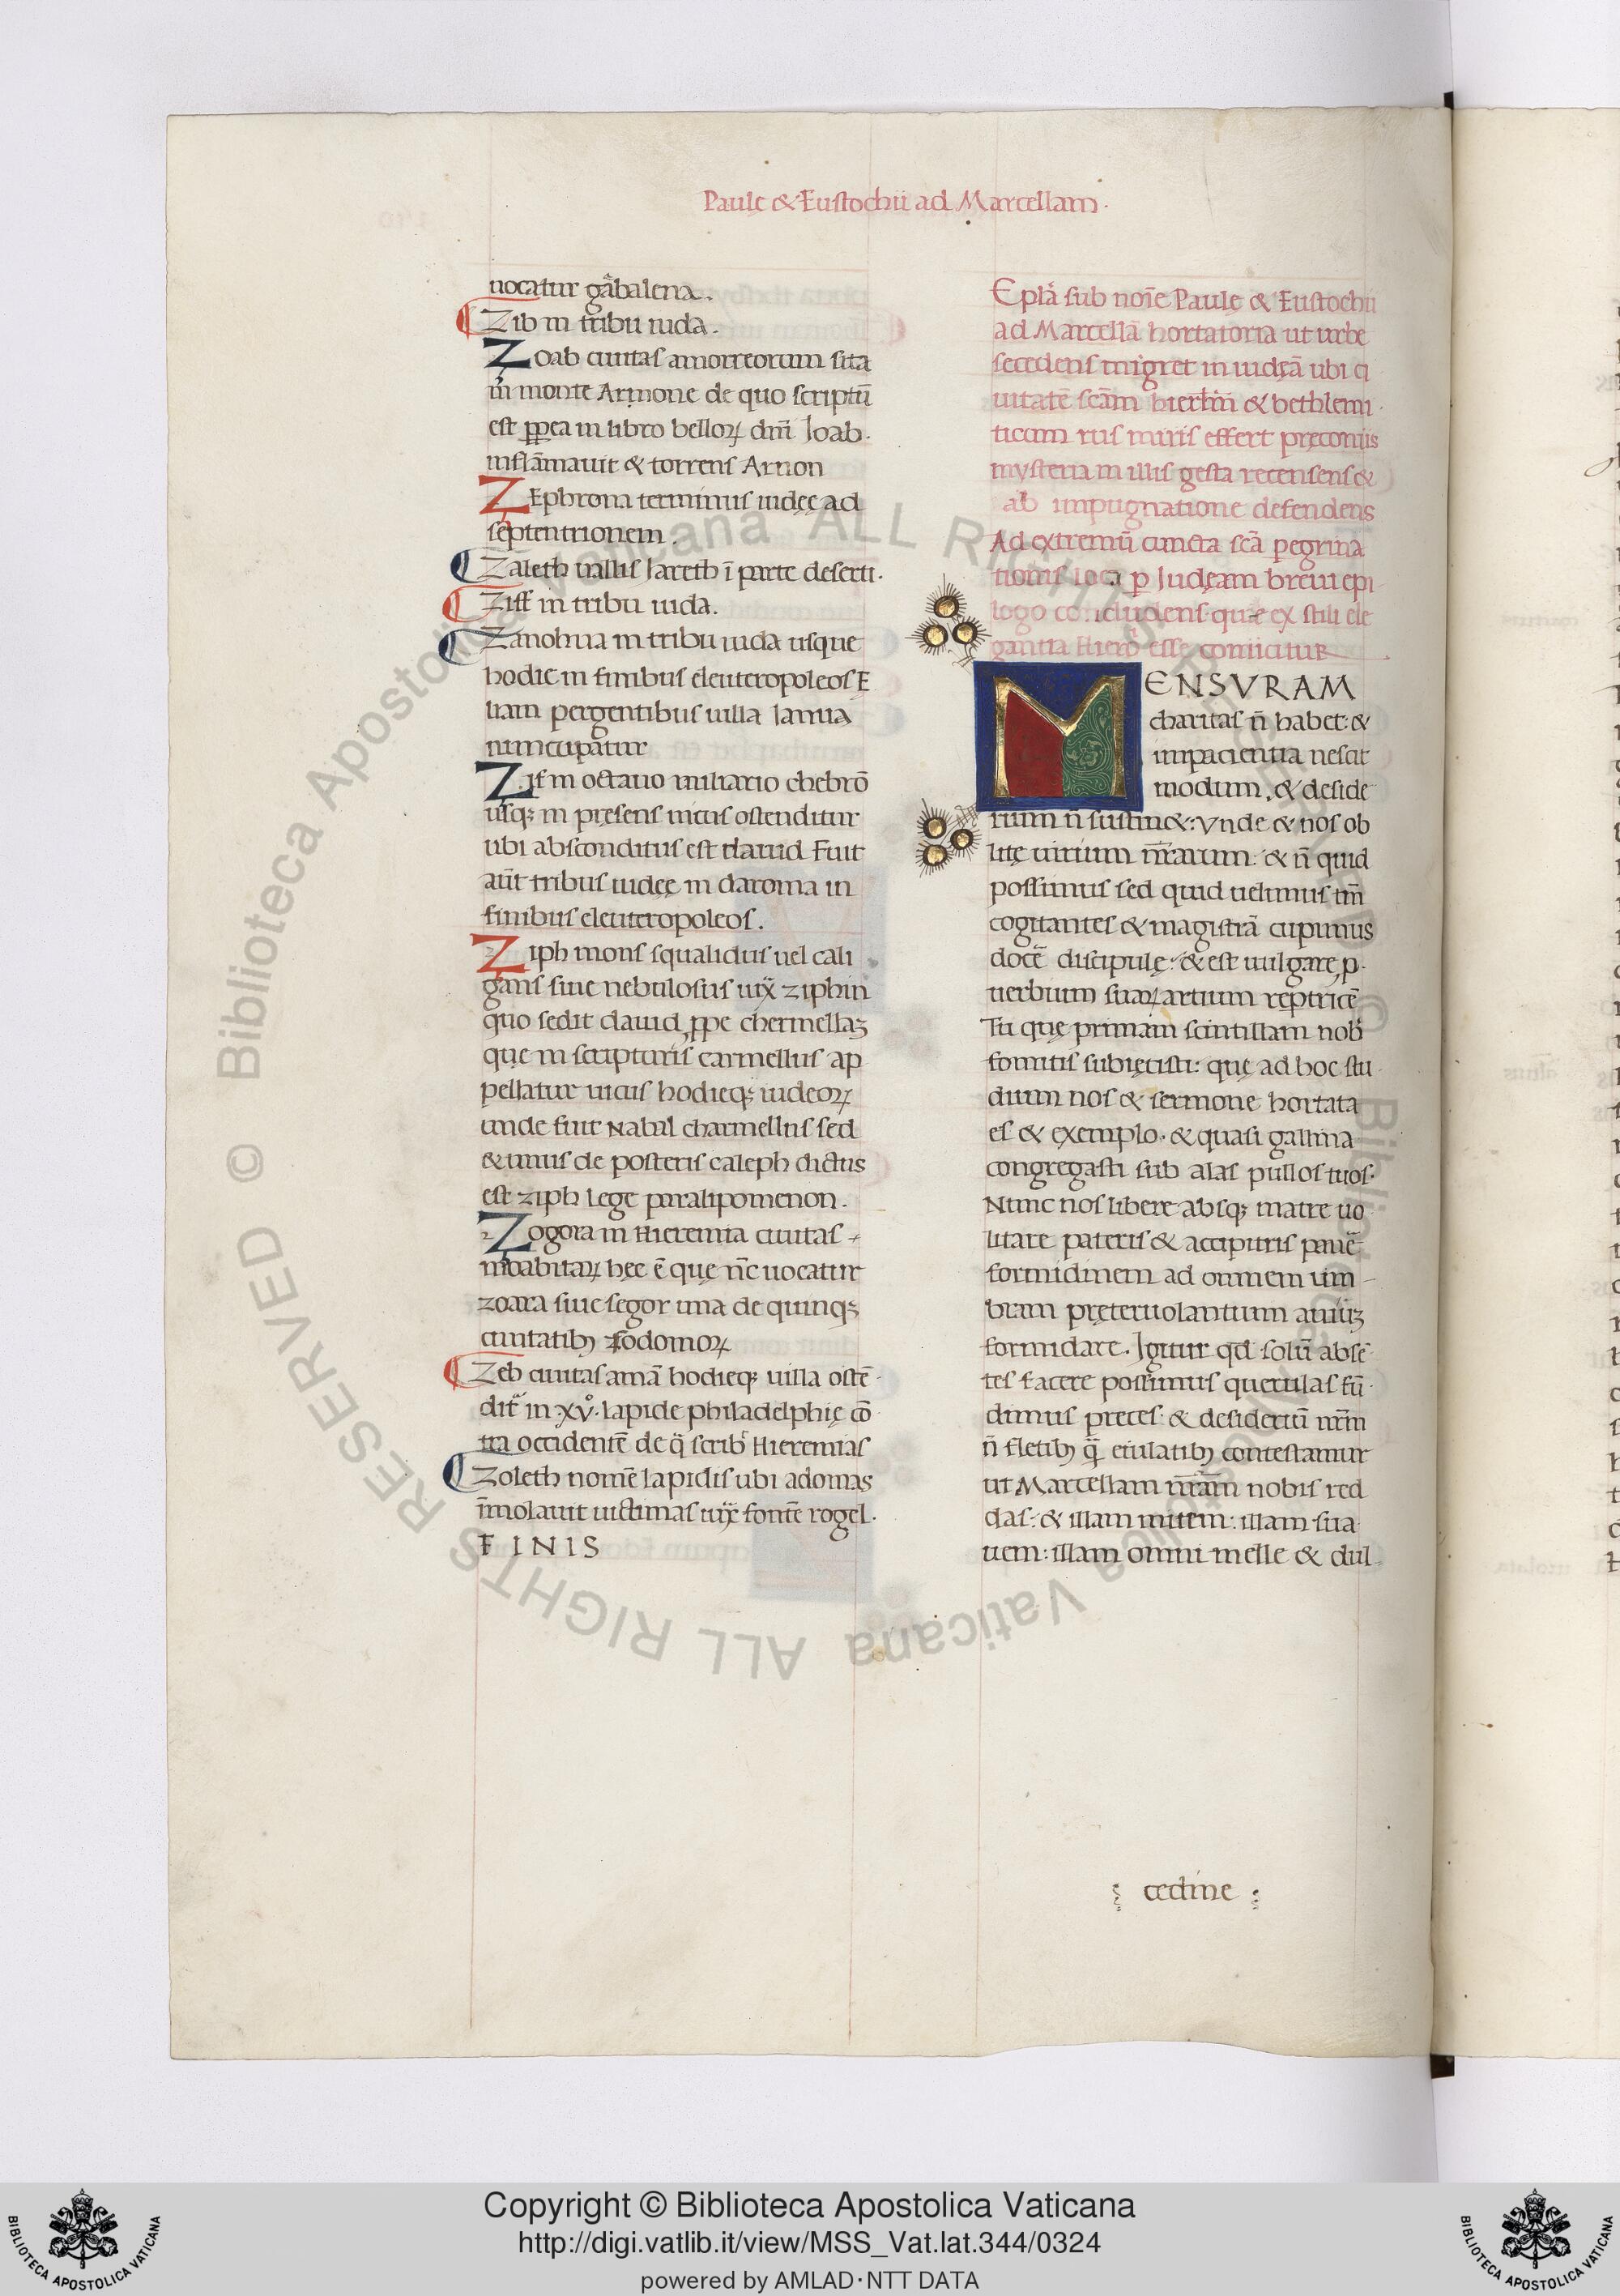 Paulę & Eustochii ad Marcellam ·
uocatur gābalena .
Zib in tribu iuda .
Zoab ciuitas amorreorum sita
in monte Armone de quo scriptū
est ꝓpea in libro belloꝝ dm̄ Ioab .
inflāmauit & torrens Arnon
ZEphrona terminus iudęę ad
septentrionem .
Zaleth uallis Iareth ī parte deserti .
Ziff in tribu iuda .
Zanohua in tribu iuda usque
hodie in finibus eleuteropoleos E
liam pergentibus uilla Ianua
nuncupatur
Zif in octauo miliario chebrō
usqꝫ in pręsens uicus ostenditur
ubi absconditus est dauid Fuit
aūt tribus iudęę in daroma in
finibus eleuteropoleos .
Ziph mons squalidus uel cali
gans siue nebulosus iux̄ ziphin
quo sedit dauid ꝓpe chermellaꝫ
quę in scripturis carmellus ap
pellatur uicus hodieqꝫ iudeoꝝ
unde fuit Nabal charmellus sed
& unus de posteris caleph dictus
est ziph lege paralipomenon .
Zogora in Hieremia ciuitas -
moabitaꝝ hęc ē quę nc̄ uocatur
zoara siue segor una de quinqꝫ
ciuitatibꝫ sodomoꝝ
Zeb ciuitas amā hodieqꝫ uilla ostē
dit̄ in xv° · lapide philadelphię cō
tra occidentē de q̄ scrib̄ Hieremias
Zoleth nomē lapidis ubi adomas
īmolauit uictimas iux̄ fontē rogel .
FINIS
Epl̄a sub noīe Paulę & Eustochii
ad Marcellā hortatoria ut urbe
secedens migret in iudęā ubi ci
uitatē scām hierl̄m & bethlemi
ticum rus miris effert pręconiis
mysteria in illis gesta recensens &
ab impugnatione defendens
Ad extremū cuncta scā peregrina
tionis loca ꝑ Iudęam breui epi
logo concludens · quæ ex stili ele
gantia Hierō esse coniicitur
MENSVRAM
charitas n̄ habet : &
impacientia nescit
modum , & deside
rium n̄ sustin& : Vnde & nos ob
litę uirium nr̄arum : & n̄ quid
possimus sed quid uelimus tm̄
cogitantes & magistrā cupimus
docē discipulę : & est uulgare ꝓ
uerbium suaꝝ artium reptricē
Tu quę primam scintillam nob̄
fomitis subięcisti : quę ad hoc stu
dium nos & sermone hortata
es & exemplo · & quasi gallina
congregasti sub alas pullos tuos ·
Nunc nos libere absqꝫ matre uo
litare pateris & accipitris pauē
formidinem ad omnem um -
bram pręteruolantum auiuꝫ
formidare . Igitur qd̄ solū absē
tes facere possumus querulas fū
dimus preces : & desideriū nr̄m
n̄ fletibꝫ q̄ eiulatibꝫ contestamur
ut Marcellam nr̄am nobis red
das : & illam mitem : illam sua
uem : illam omni melle & dul
cedine
Copyright © Biblioteca Apostolica Vaticana
http://digi.vatlib.it/view/MSS_Vat.lat.344/0324
powered by AMLAD · NTT DATA
BIBLIOTECA APOSTOLICA VATICANA
BIBLIOTECA APOSTOLICA VATICANA
© Biblioteca Apostolica Vaticana ALL RIGHTS RESERVED © Biblioteca Apostolica Vaticana ALL RIGHTS RESERVED